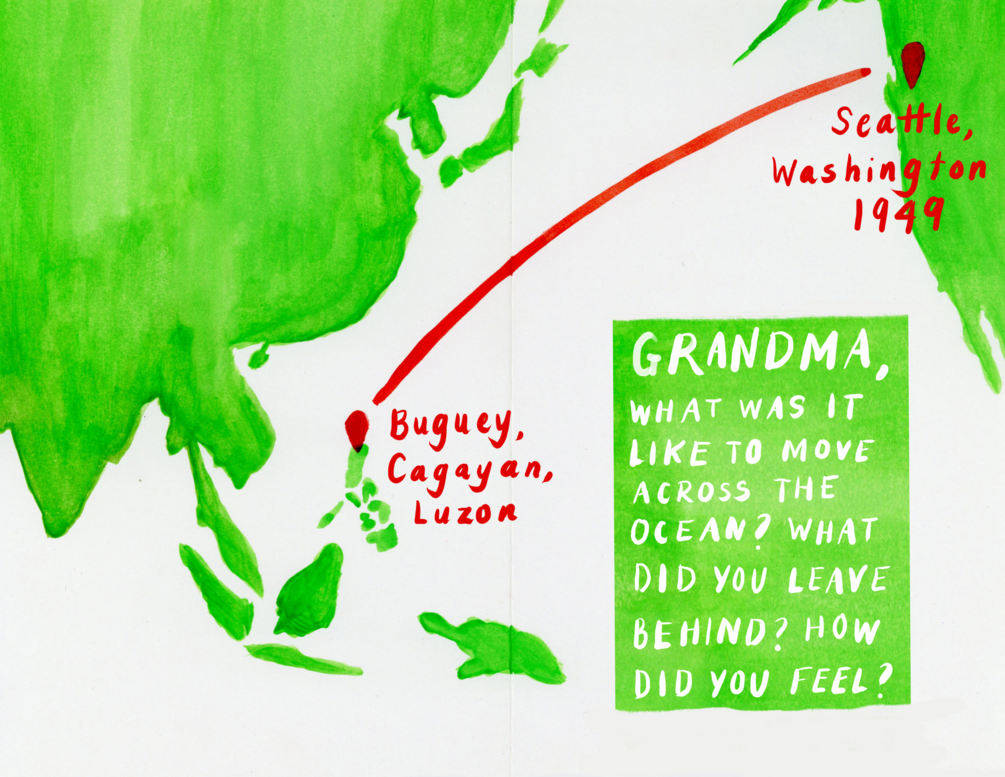 Seattle,
Washington
1949
Buguey,
Cagayan,
Luzon
GRANDMA,
WHAT WAS IT
LIKE TO MOVE
ACROSS THE
OCEAN? WHAT
DID YOU LEAVE
BEHIND? HOW
DID YOU FEEL?